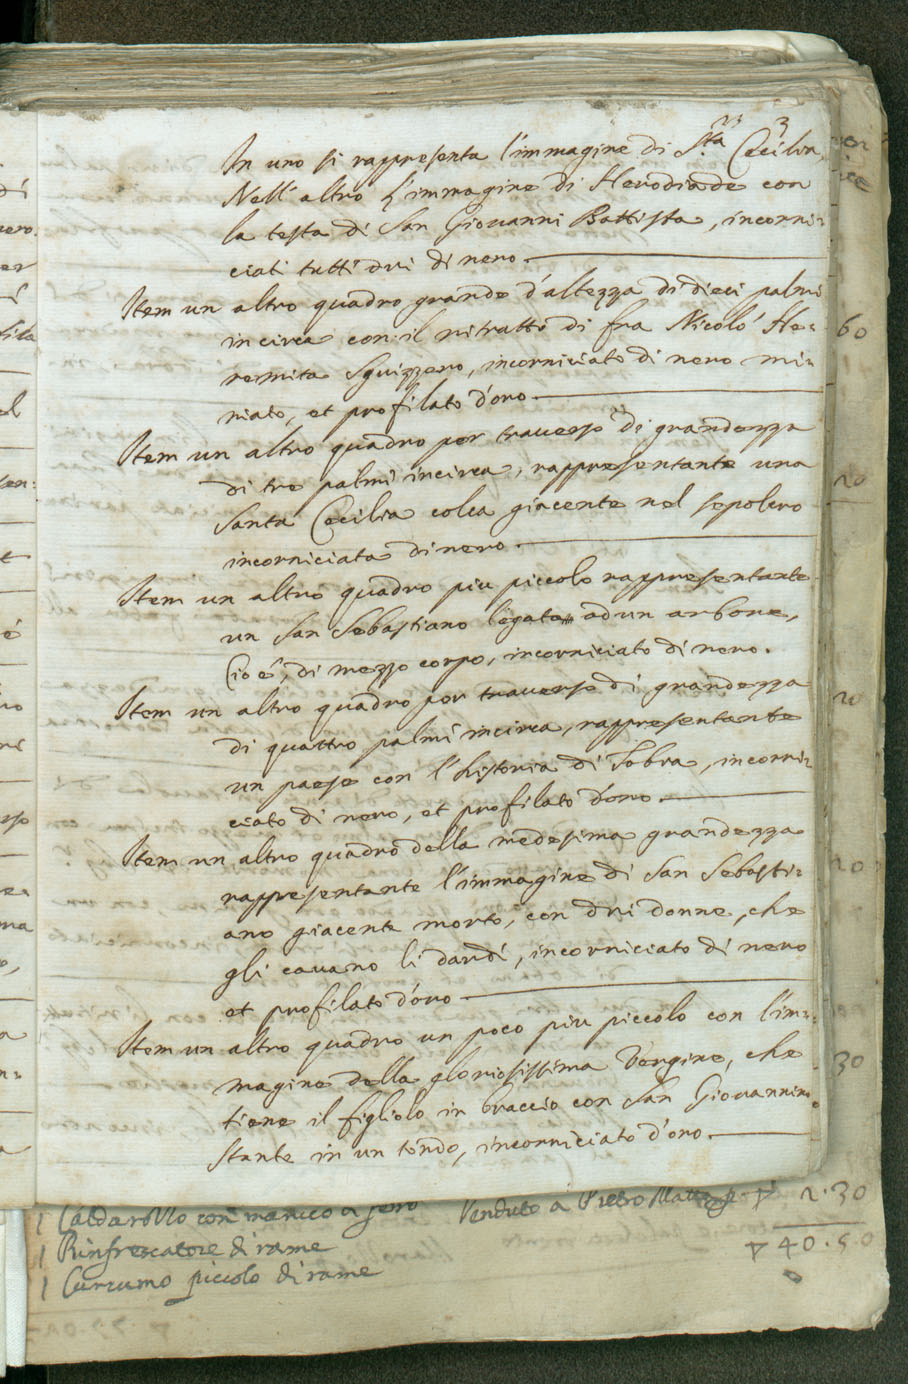 3
In uno si rappresenta l'immagine di S.ta Cecilia,
Nell' altro l'immagine di Herodiade con
la testa di San Giovanni Battista, incorni=
ciati tutti dui di nero.
Item un altro quadro grande d'altezza di dieci palmi
in circa con il ritratto di fra Nicolo' He=
remita Sguizzero, incorniciato di nero mi=
niato, et profilato d'oro.
Item un altro quadro per traverso di grandezza
di tre palmi incirca, rappresentante una
Santa Cecilia colca giacente nel sepolcro
incorniciata di nero.
Item un altro quadro piu piccolo rappresentante
un San Sebastiano legato ad un arbore,
Cio é, di mezzo corpo, incorniciato di nero.
Item un altro quadro per traverso di grandezza
di quattro palmi incirca, rappresentante
un paese con l'historia di Tobia, incorni=
ciato di nero, et profilato d'oro.
Item un altro quadro della medesima grandezza
rappresentante l'immagine di San Sebasti=
ano giacente morto, con dui donne, che
gli cavano li dardi, incorniciato di nero
et profilato d'oro
Item un altro quadro un poco piu piccolo con l'im=
magine della gloriosissima Vergine, che
tiene il figliolo in braccio con San Giovannino
stante in un tondo, incorniciato d'oro.
60
20
20
20
30
1 Caldarollo con manico di ferro Venduto a Pietro 2.30
1 Rinfrescatore di rame 40.50
1 Curcumo piccolo di rame